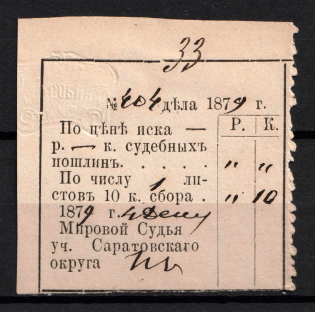 33
№ 404 дѣла 1879 г.
По цѣнѣ иска —
р. — к. судебныхъ
пошлинъ . . . . .
По числу 1 ли-
стовъ 10 к. сбора .
1879 г.
Мировой Судья
уч. Саратовскаго
округа
Р. К.
" "
" 10